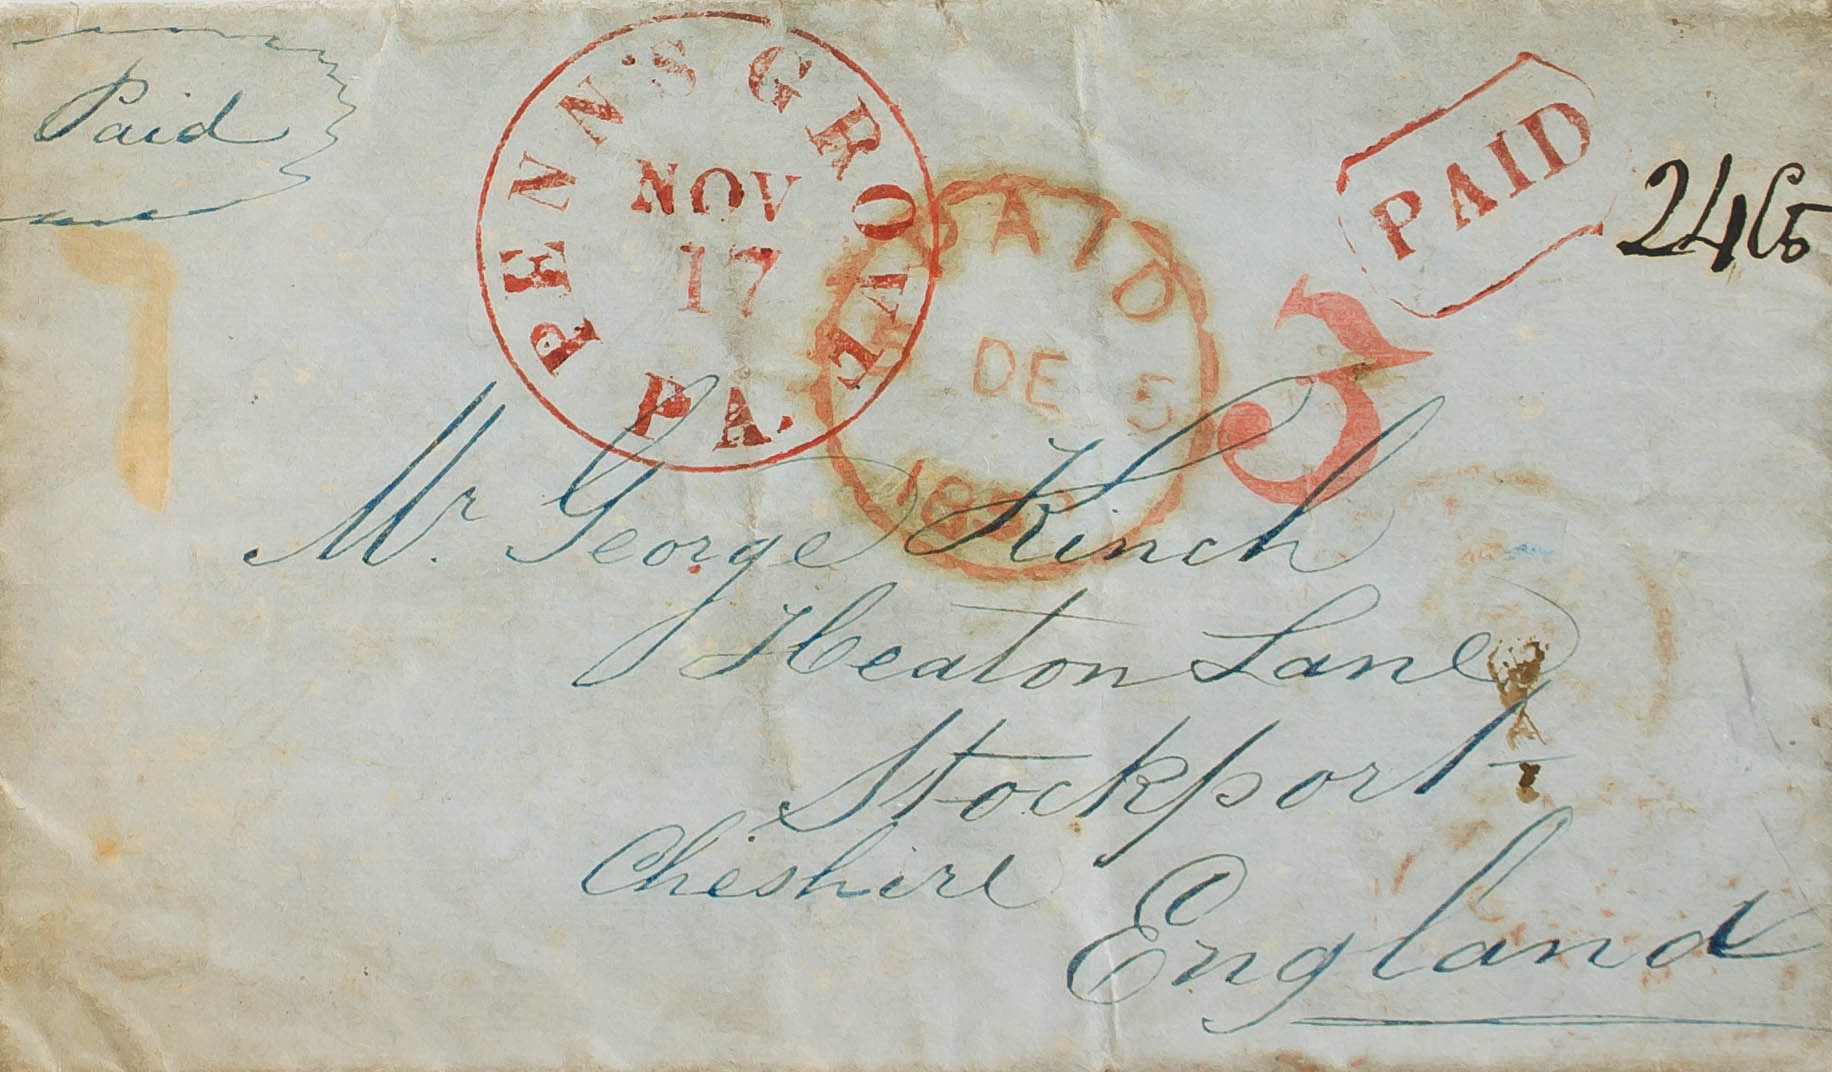 Paid
PENN'S GROVE
NOV
17
PA.
PAID
DE 5
PAID
24
5
Mr. George Kinch
Heaton Lane
Stockport
Cheshire
England